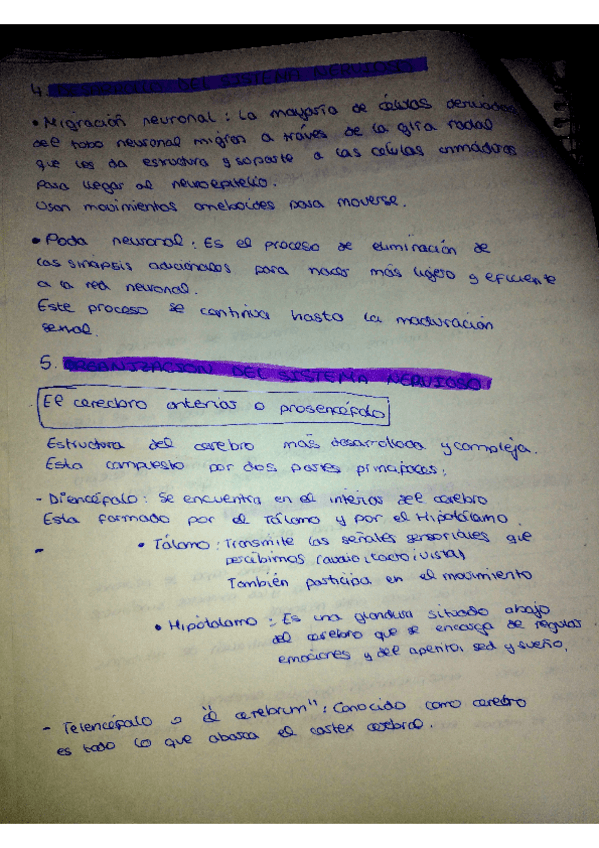 4. DESARROLLO DEL SISTEMA NERVIOSO
• Migración neuronal: La mayoría de células derivadas
del tobo neuronal migran a través de la glía radial
que les da estructura y soporte a las células inmaduras
para llegar al neuroepitelio.
Usan movimientos ameboides para moverse.
• Poda neuronal: Es el proceso de eliminación de
las sinapsis adicionales para hacer más ligero y eficiente
a la red neuronal.
Este proceso se continua hasta la maduración
sexual.
5. ORGANIZACIÓN DEL SISTEMA NERVIOSO
El cerebro anterior o prosencéfalo
Estructura del cerebro más desarrollada y compleja.
Esta compuesto por dos partes principales:
- Diencéfalo: Se encuentra en el interior del cerebro
Esta formado por el Tálamo y por el Hipotálamo.
-
• Tálamo: Transmite las señales sensoriales que
recibimos (audio, tacto, vista)
También participa en el movimiento
• Hipotálamo: Es una glándula situado abajo
del cerebro que se encarga de regular
emociones y del apetito, sed y sueño.
- Telencéfalo o "el cerebrum": Conocido como cerebro
es todo lo que abarca el cortex cerebral.